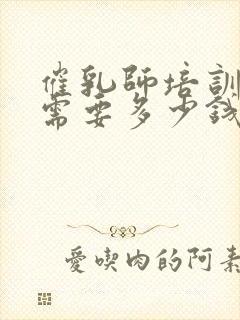 催乳師培訓
需要多少錢
愛喫肉的阿素